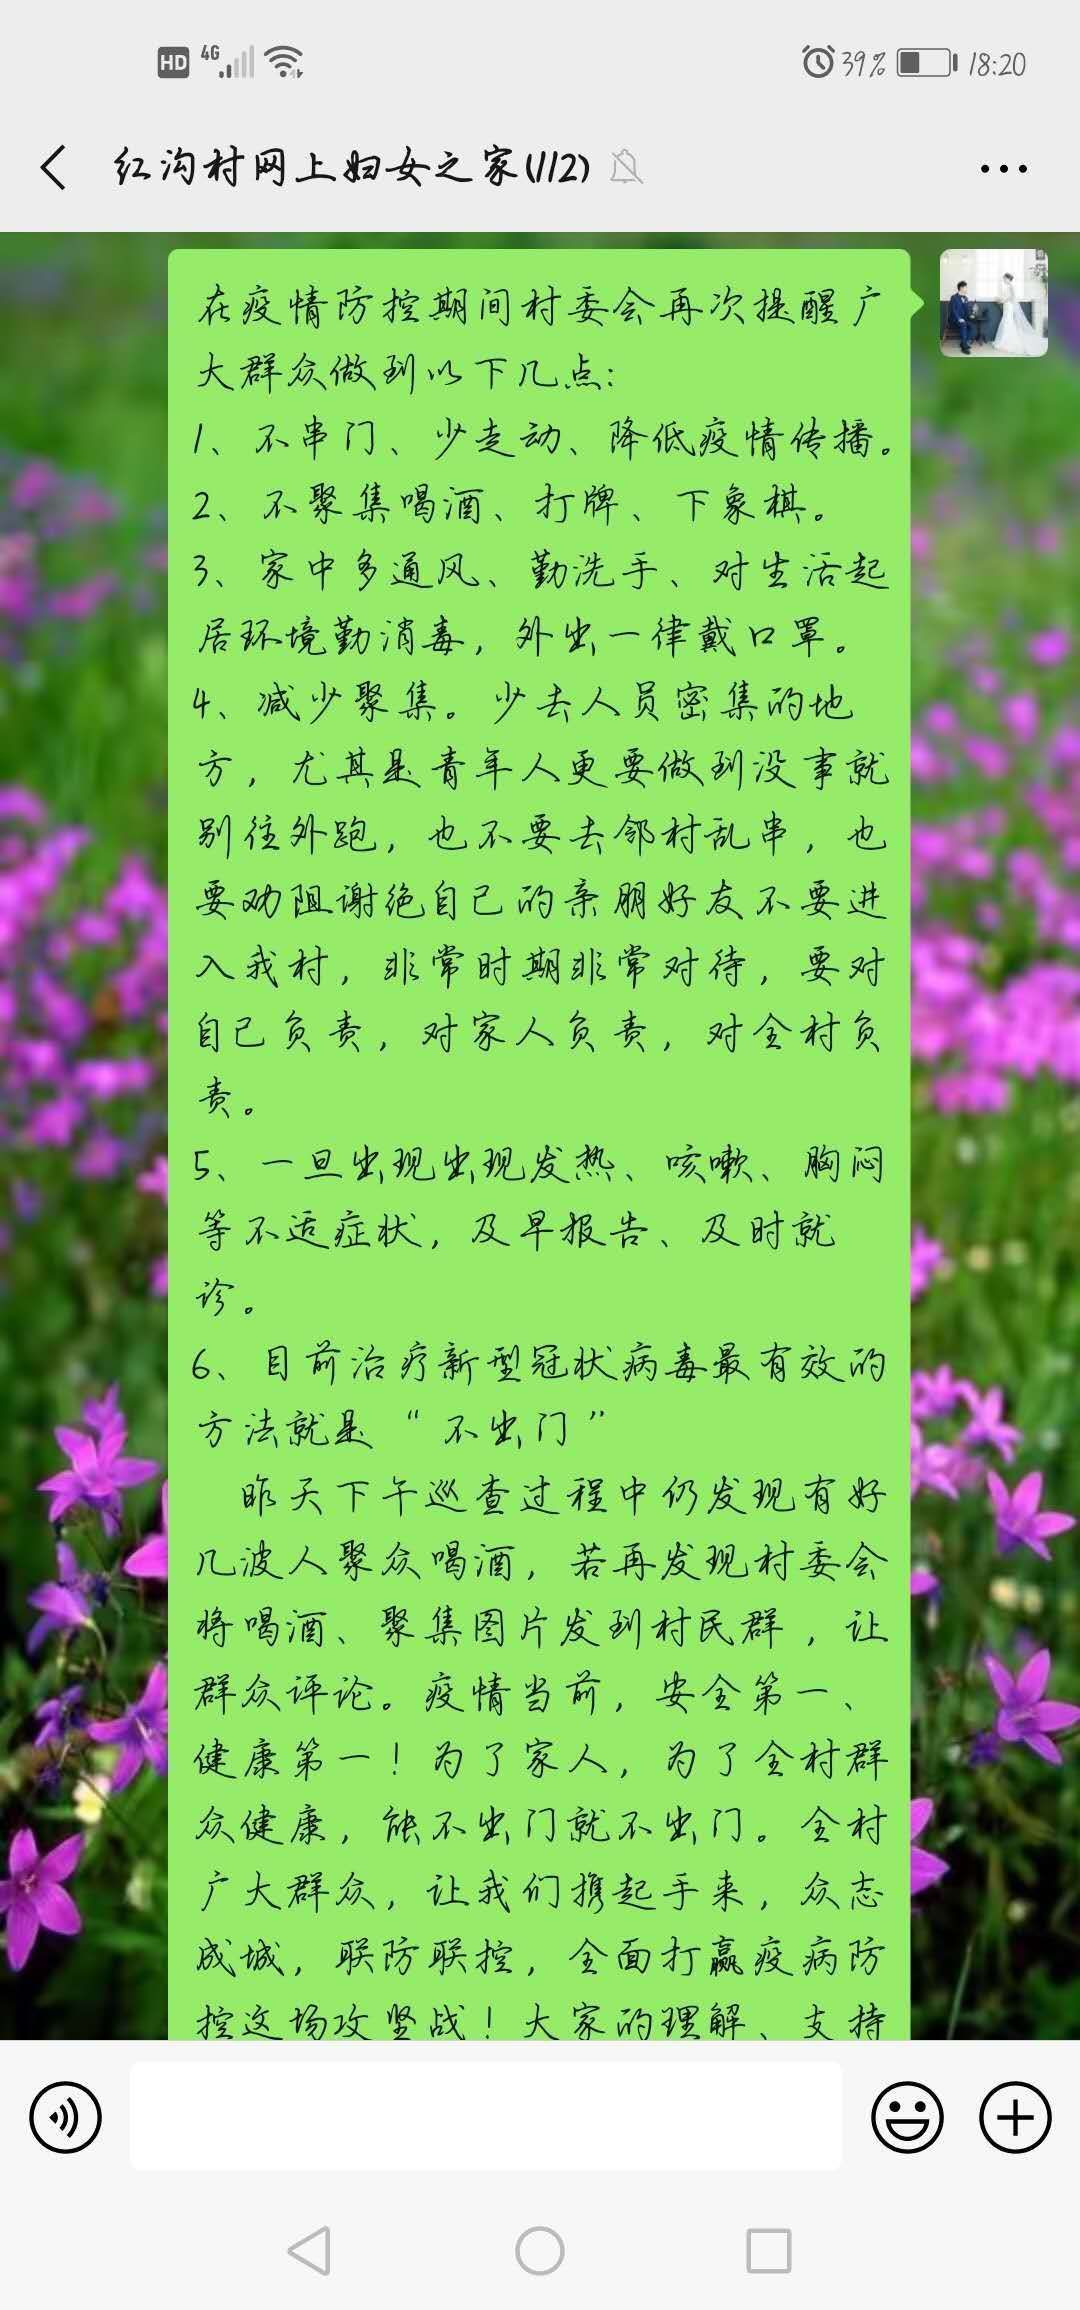 HD 4G 39% 18:20
红沟村网上妇女之家(112)
在疫情防控期间村委会再次提醒广
大群众做到以下几点：
1、不串门、少走动、降低疫情传播。
2、不聚集喝酒、打牌、下象棋。
3、家中多通风、勤洗手、对生活起
居环境勤消毒，外出一律戴口罩。
4、减少聚集。少去人员密集的地
方，尤其是青年人更要做到没事就
别往外跑，也不要去邻村乱串，也
要劝阻谢绝自己的亲朋好友不要进
入我村，非常时期非常对待，要对
自己负责，对家人负责，对全村负
责。
5、一旦出现出现发热、咳嗽、胸闷
等不适症状，及早报告、及时就
诊。
6、目前治疗新型冠状病毒最有效的
方法就是“不出门”
昨天下午巡查过程中仍发现有好
几波人聚众喝酒，若再发现村委会
将喝酒、聚集图片发到村民群，让
群众评论。疫情当前，安全第一、
健康第一！为了家人，为了全村群
众健康，能不出门就不出门。全村
广大群众，让我们携起手来，众志
成城，联防联控，全面打赢疫病防
控这场攻坚战！大家的理解、支持